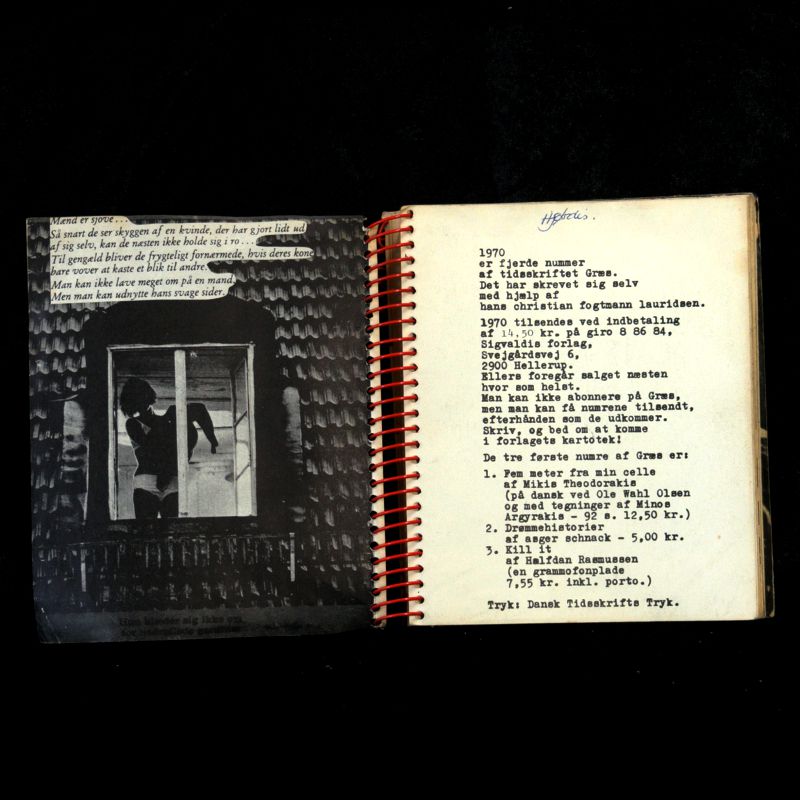 Mænd er sjove...
Så snart de ser skyggen af en kvinde, der har gjort lidt ud
af sig selv, kan de næsten ikke holde sig i ro...
Til gengæld bliver de frygteligt fornærmede, hvis deres kone
bare vover at kaste et blik til andre.
Man kan ikke lave meget om på en mand.
Men man kan udnytte hans svage sider.
Hun klæder sig ikke om
for
1970
er fjerde nummer
af tidsskriftet Græs.
Det har skrevet sig selv
med hjælp af
hans christian fogtmann lauridsen.
1970 tilsendes ved indbetaling
af 14,50 kr. på giro 8 86 84,
Sigvaldis forlag,
Svejgårdsvej 6,
2900 Hellerup.
Ellers foregår salget næsten
hvor som helst.
Man kan ikke abonnere på Græs,
men man kan få numrene tilsendt,
efterhånden som de udkommer.
Skriv, og bed om at komme
i forlagets kartotek!
De tre første numre af Græs er:
1. Fem meter fra min celle
af Mikis Theodorakis
(på dansk ved Ole Wahl Olsen
og med tegninger af Minos
Argyrakis - 92 s. 12,50 kr.)
2. Drømmehistorier
af asger schnack - 5,00 kr.
3. Kill it
af Halfdan Rasmussen
(en grammofonplade
7,55 kr. inkl. porto.)
Tryk: Dansk Tidsskrifts Tryk.